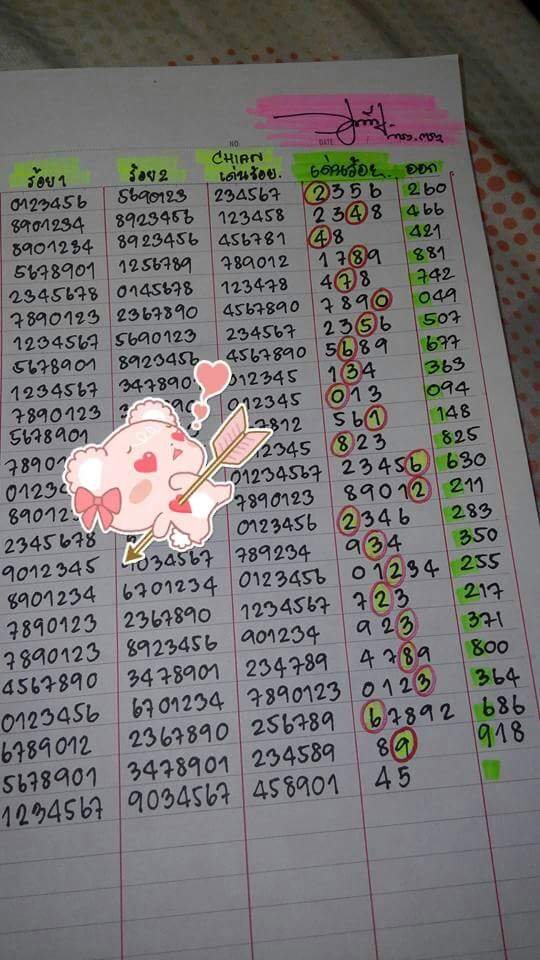 NO. DATE
ร้อย 1 ร้อย 2 CHIAN เด่นร้อย. เด่นร้อย. ออก
0123456 5690123 234567 2356 260
8901234 8923456 123458 2348 466
8901234 8923456 456781 48 421
5678901 1256789 789012 1789 881
2345678 0145678 123478 478 742
7890123 2367890 4567890 7890 049
1234567 5690123 234567 2356 507
5678901 8923456 4567890 5689 677
1234567 347890 012345 134 363
7890123 012345 013 094
5678901 7812 561 148
7890 12345 823 825
012 01234567 23456 630
8901 7890123 89012 211
2345678 0123456 2346 283
9012345 034567 789234 934 350
8901234 6701234 0123456 01234 255
7890123 2367890 1234567 723 217
7890123 8923456 901234 923 371
4567890 3478901 234789 4789 800
0123456 6701234 7890123 0123 364
6789012 2367890 256789 67892 686
5678901 3478901 234589 89 918
1234567 9034567 458901 45